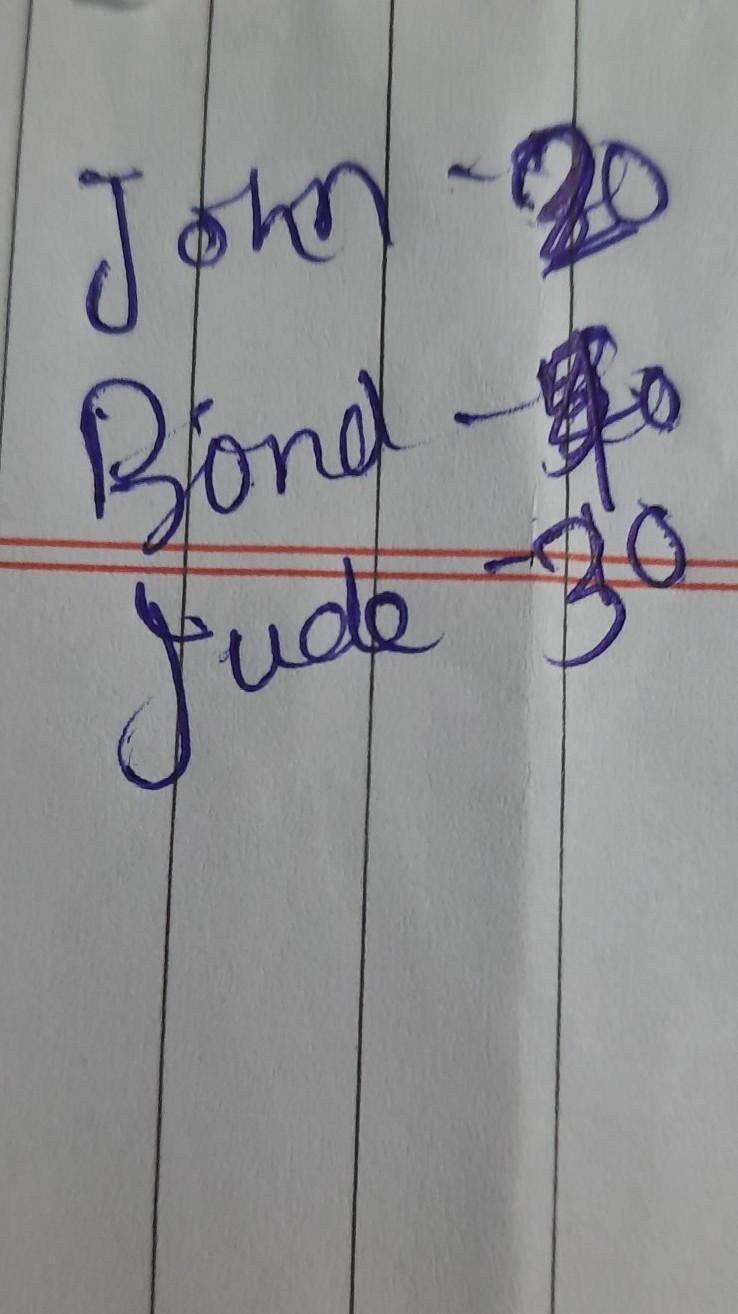 John -20
Bond -
Jude -30